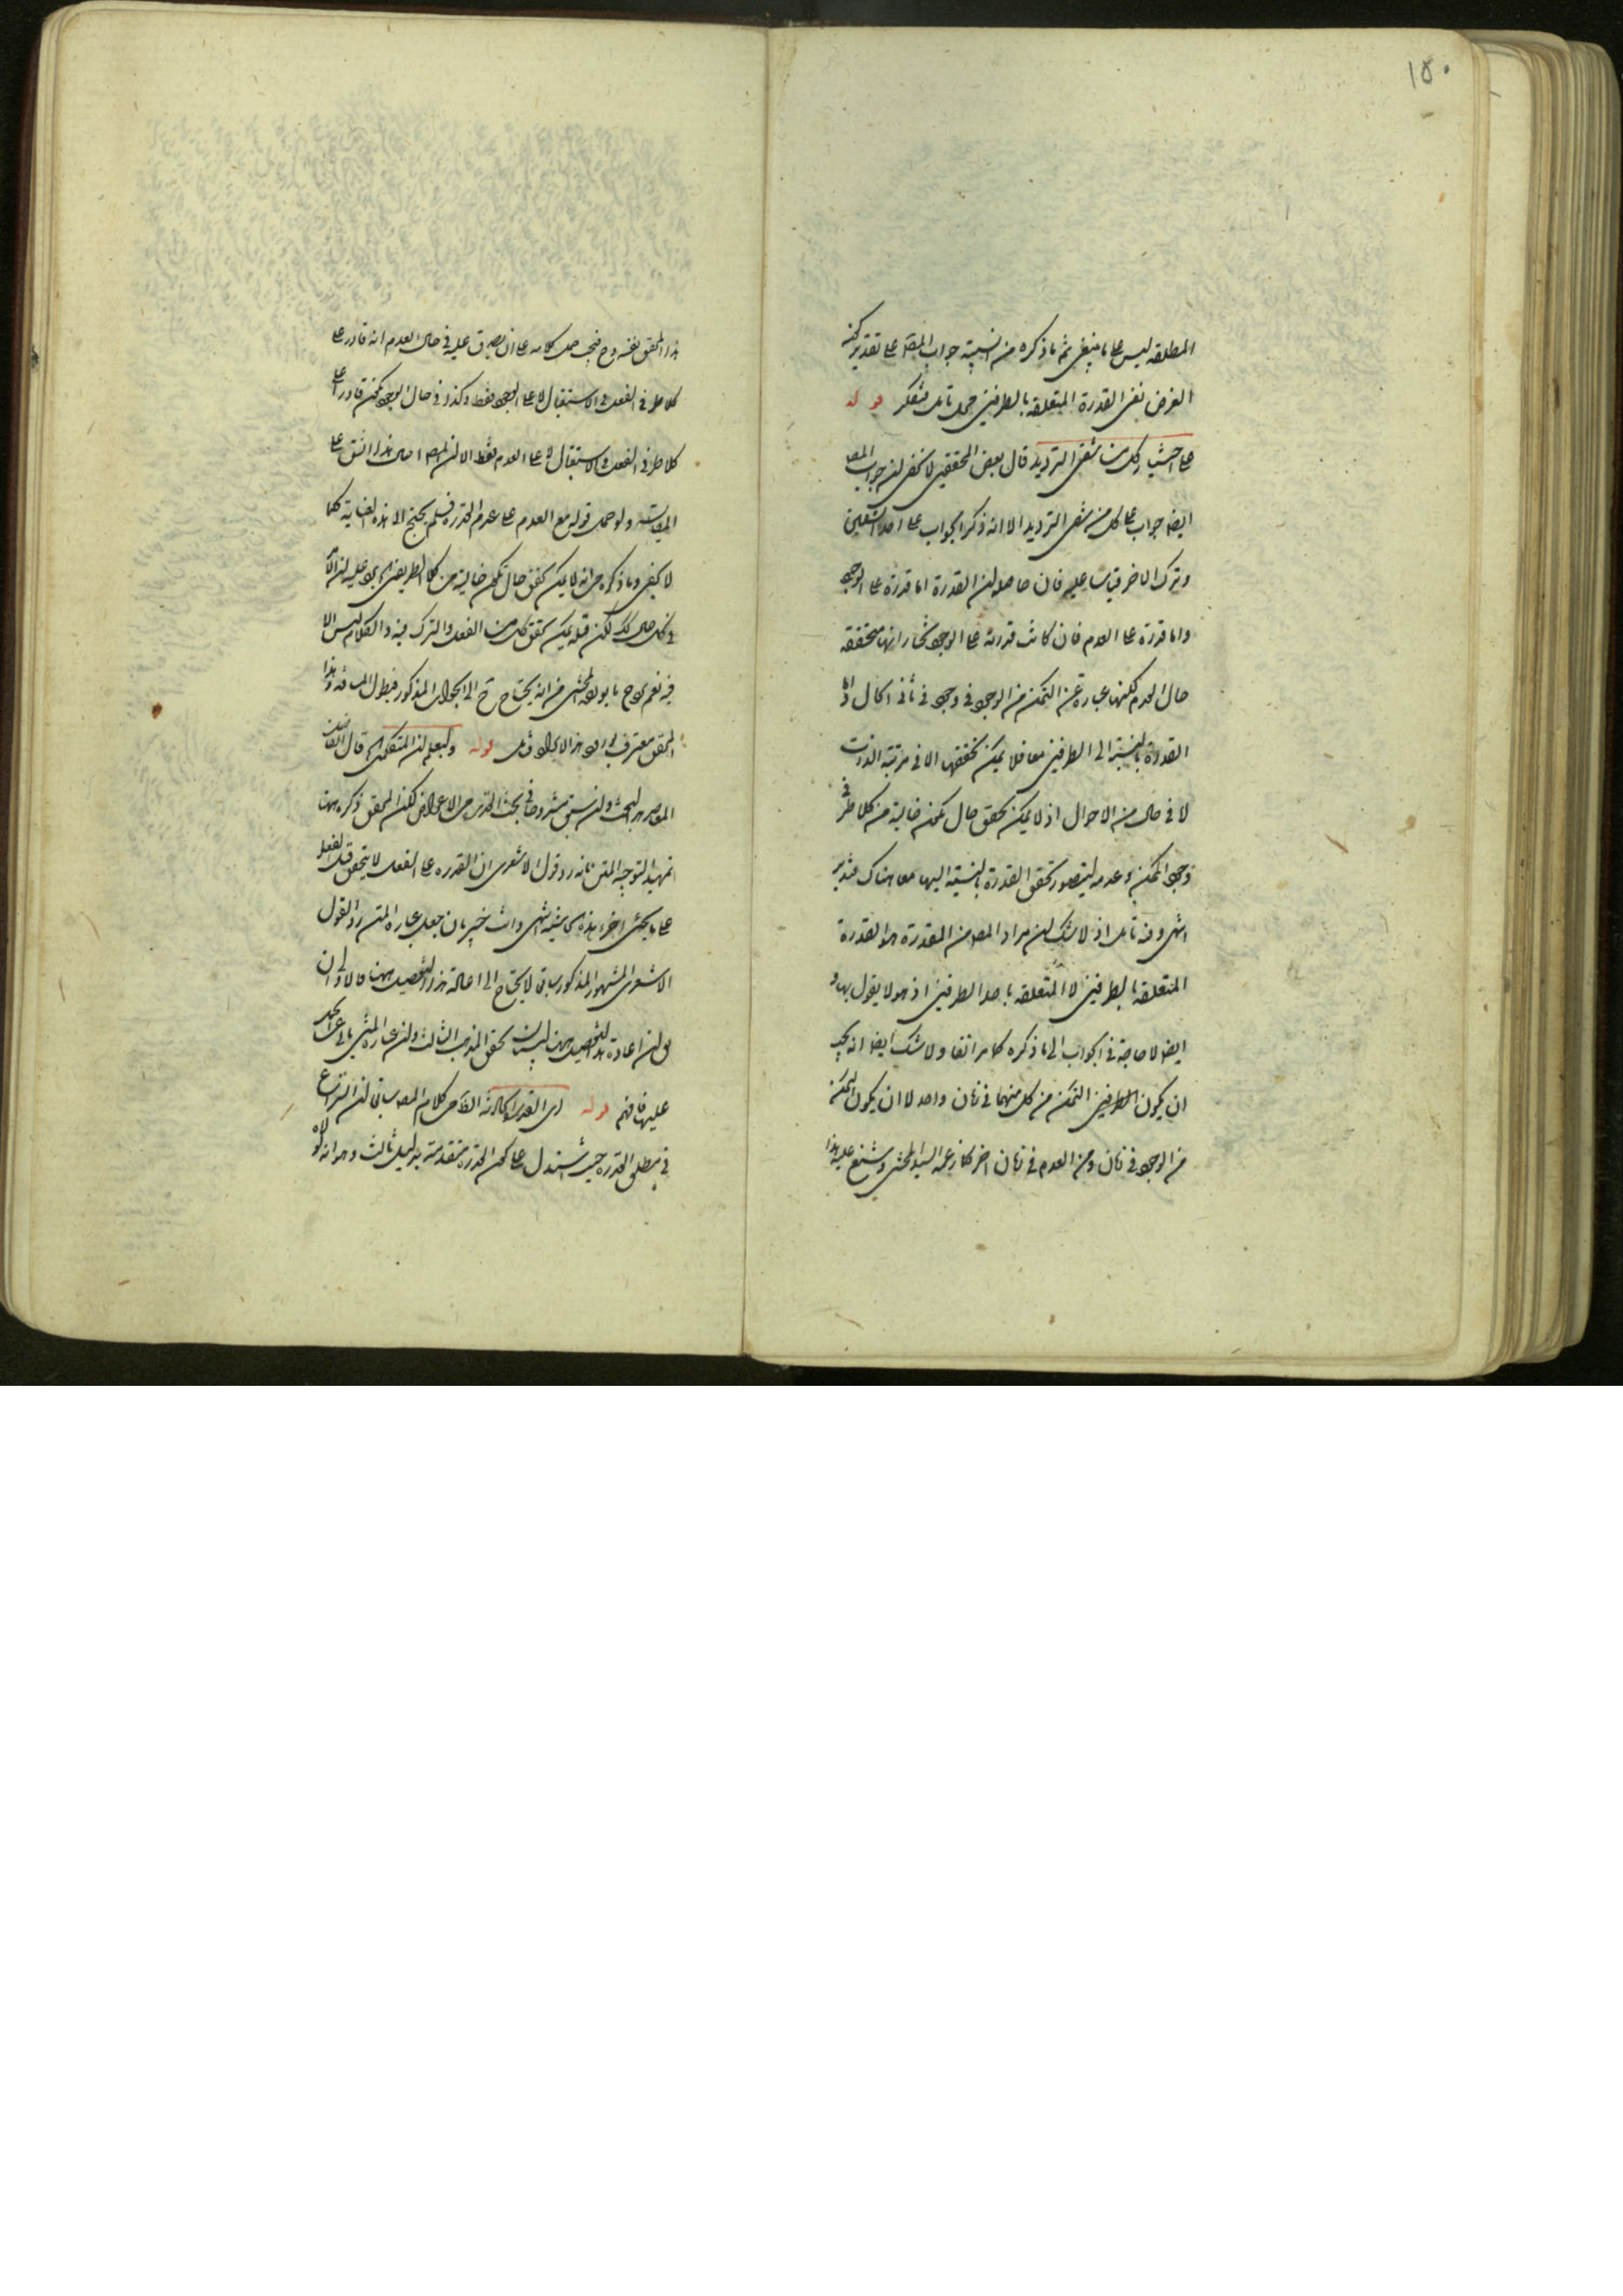 ١٥٠
المطلقه ليس على ما ينبغي ثم ما ذكره من النسبة جواب المص على تقدير كونه
الغرض نفى القدرة المتعلقة بالطرفين محل تامل فتفكر قوله
على احتيار كل من شقى الترديد قال بعض المحققين لا يخفى ان جواب المص
ايضا جواب على كل من شقى الترديد الا انه ذكر الجواب على احد الشقين
وترك الاخر قياسا عليه فان حاصله ان القدرة اما قدرة على الوجود
واما قدرة على العدم فان كانت قدرة على الوجود نختار انها متحققة
حال العدم لكنها عبارة عن التمكن من الوجود في وجود في ثانى الحال واما
القدرة بالنسبة الى الطرفين معا فلا يمكن تحققها الا في مرتبة الذات
لا في حال من الاحوال اذ لا يمكن تحقق حال يمكن خالية من كلا طرفى
وجود الممكن وعدمه ليتصور تحقق القدرة بالنسبة اليها معا هناك فتدبر
انتهى وفيه تامل اذ لا شك ان مراد المص من القدرة هو القدرة
المتعلقة بالطرفين لا المتعلقة باحد الطرفين اذ هو لا يقول بها و
ايضا لا حاجة في الجواب الى ما ذكره كما مر انفا ولا شك ايضا انه يجب
ان يكون الطرفين التمكن من كل منهما في زمان واحد لا ان يكون التمكن
من الوجود في زمان ومن العدم في زمان اخر كما زعمه السيد المحشى وشنع عليه هذا
هذا المحقق نفسه وح فيجب حمل كلامه على ان يصدق عليه في حال العدم انه قادر على
كلا طرفى الفعل في الاستقبال لا على الوجود فقط وكذا في حال الوجود يمكن قادرا على
كلا طرفى الفعل في الاستقبال لا على العدم فقط الا ان المص احال هذا الشق على
المقايسة ولو حمل قوله مع العدم على عدم القدرة فلم يحتج الا هذه العناية كما
لا يخفى وما ذكره من انه لا يمكن تحقق حال يمكن خالية من كلا الطرفين
في كل حال لكن قبله يمكن تحقق كل من الفعل والترك فيه والكلام ليس الا
فيه نعم من انه يحتاج ح الى الجواب المذكور فيطول المسافة وهذا
المحقق معترف قوله وليعلم ان المتكلمين قال الفاضل
المعاصر هذا البحث وان سبق مشروحا في بحث القدرة من الاعراض لكن المحقق ذكره ههنا
تمهيدا لتوجيه المتن بانه رد قول الاشعرى ان القدرة على الفعل لا يتحقق قبل الفعل
على ما يجئ اخر هذه الحاشية انتهى وانت خبير بان جعل عبارة المتن رد القول
الاشعرى المشهور المذكور سابقا لا يحتاج الى اعادة هذا التفصيل ههنا فالاولى ان
يق ان اعادة هذا التفصيل ههنا لبيان تحقق المذهب الثالث وان عبارة المتن
عليها فافهم قوله اى القدرة الحادثة الظ من كلام المص سابقا ان النزاع
في مطلق القدرة حيث استدل على كون القدرة متقدمة بدليل ثالث وهو انه لولاه